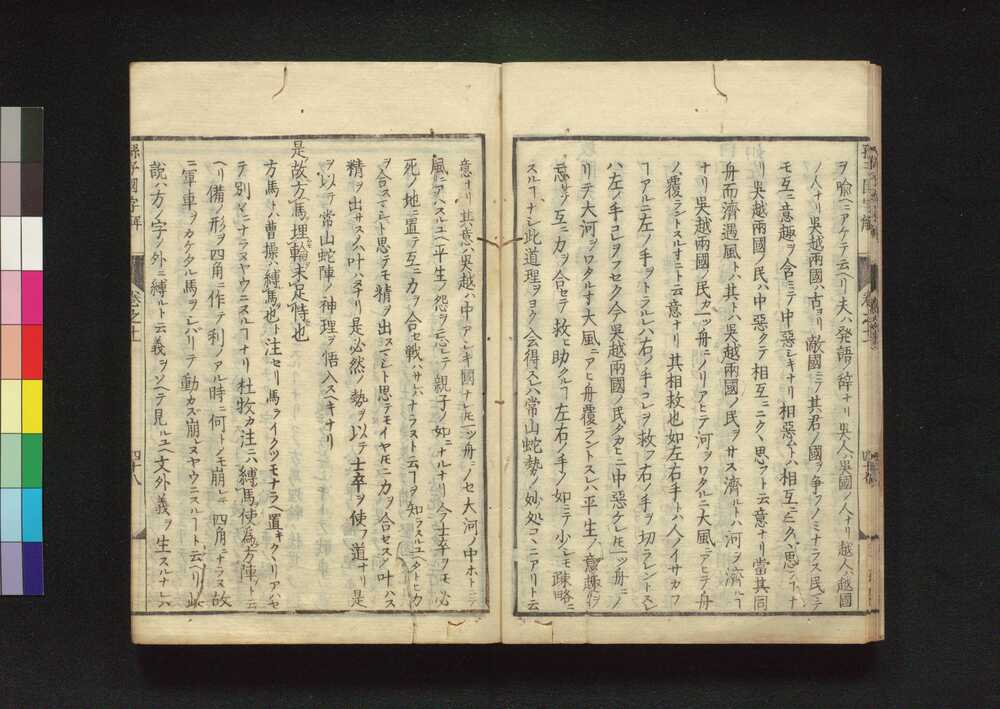 ヲ喩ニアケテ云ヘリ夫ハ発語ノ辞ナリ呉人ハ呉國ノ人ナリ越人ハ越國
ノ人ナリ呉越兩國ハ古ヨリ敵國ニテ其君ノ國ヲ争フノミナラス民ニテ
モ互ニ意趣ヲ含ミテ中惡シキナリ相惡トハ相互ニニクヽ思フナ
リ呉越兩國ノ民ハ中惡クテ相互ニニクヽ思フト云意ナリ當其同
舟而濟遇風トハ其トハ呉越兩國ノ民ヲサス濟ルトハ河ヲ濟ルコ
ナリ呉越兩國ノ民カ一ッ舟ニノリアヒテ河ヲワタルニ大風ニアヒテ舟
ノ覆ラントスルトキニト云意ナリ其相救也如左右手トハ人ノイサカフ
コアルニ左ノ手ヲトラルレハ右ノ手コレヲ救フ右ノ手ヲ切ラレントスレ
ハ左ノ手コレヲフセク今呉越兩國ノ民タカヒニ中惡ケレ𪜈一ッ舟ニノ
リテ大河ヲワタルトキ大風ニアヒ舟覆ラントスレハ平生ノ意趣ヲ
忘レテ互ニカヲ合セテ救ヒ助クルコ左右ノ手ノ如ニテ少シモ疎略ニ
スルコナシ此道理ヲヨク會得スレハ常山蛇勢ノ妙処コヽニアリト云
意ナリ其意ハ呉越ハ中アシキ國ナレ𪜈一ッ舟ニノセ大河ノ中ホトニテ
風ニアハスルユヘ平生ノ怨ヲ忘レテ親子ノ如ニナルナリ今士卒ヲモ必
死ノ地ニ置テ互ニ力ヲ合セ戰ハサレハナラスト云コヲ知ラスルユヘタトヒ力
ヲ合スマシト思テモ精ヲ出スマシト思テモイヤ𪜈ニ力ヲ合セスノ叶ハス
精ヲ出サスノ叶ハヌナリ是必然ノ勢ヲ以テ士卒ヲ使フ道ナリ是
ヲ以テ常山蛇陣ノ神理ヲ悟入スヘキナリ
是故方馬埋輪未足恃也
方馬トハ曹操ハ縛馬也ト注セリ馬ヲイクツモナラヘ置キクヽリアハセ
テ別々ニナラヌヤウニスルコナリ杜牧カ注ニハ縛馬使為方陣ト云
ヘリ備ノ形ヲ四角ニ作テ利ノアル時ニ何トノモ崩レテ四角ニナラス故
ニ軍車ヲカケタル馬ヲシバリテ動カズ崩レヌヤウニスルコト云ヘリ此
説ハ方ノ字ノ外ニ縛ルト云義ヲソヘテ見ルユヘ文外ノ義ヲ生スルナレハ
孫子國字解
卷之十一
四十八